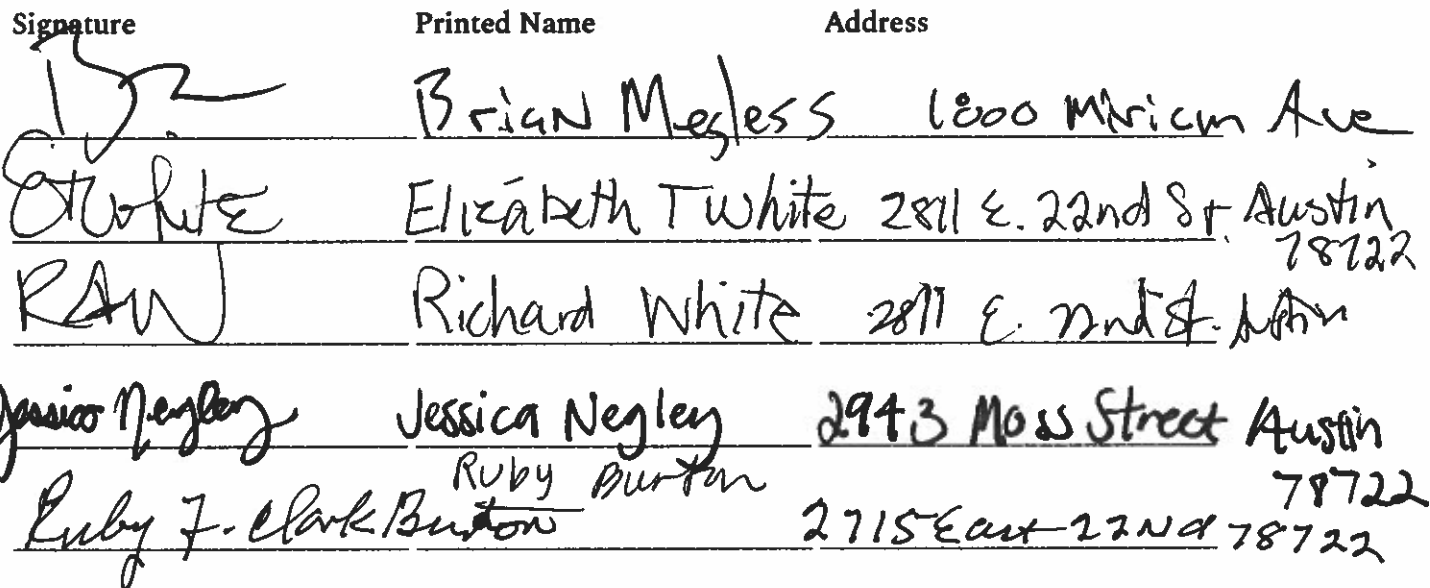 Signature Printed Name Address
Brian Megless 1800 Miriam Ave
ETWhite Elizabeth T White 2811 E. 22nd St. Austin
78722
RAW Richard White 2811 E. 22nd St. Austin
Jessica Negley Jessica Negley 2943 Moss Street Austin
78722
Ruby Burton
Ruby F. Clark Burton 2715 East 22nd 78722